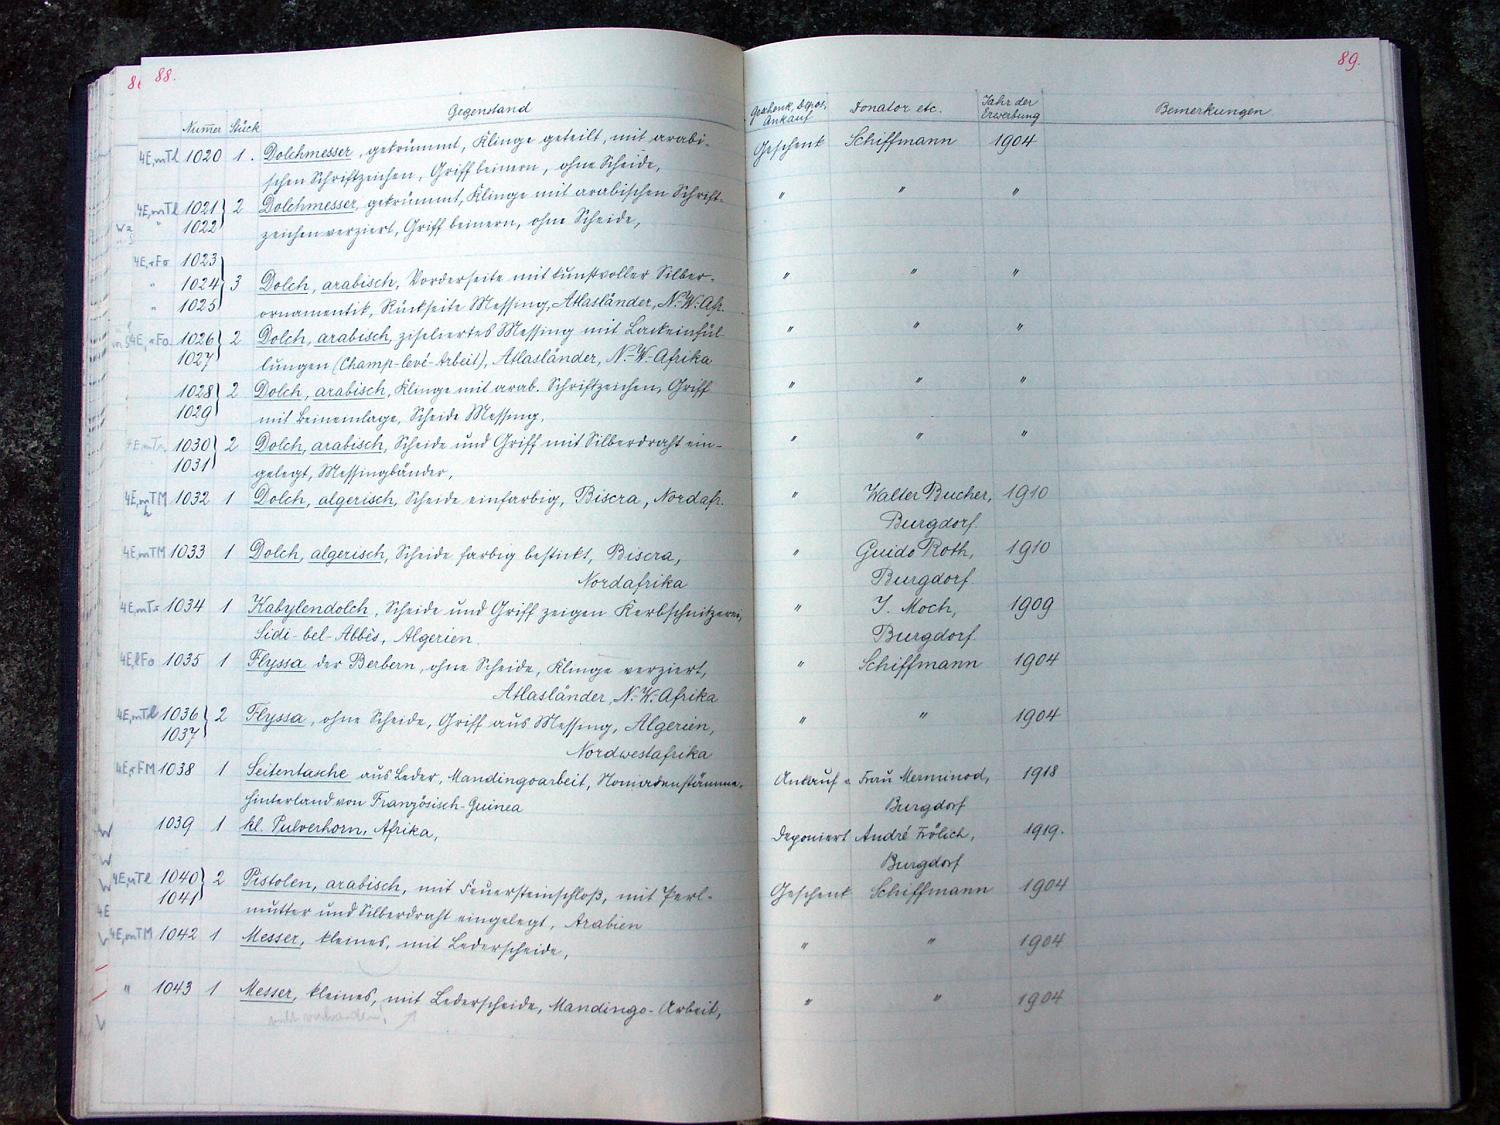 88.
89.
Numer Stück Gegenstand Geschenk, Depos. Ankauf Donator etc. Jahr der Erwerbung Bemerkungen
4E,mTl 1020 1. Dolchmesser, gekrümmt, Klinge geteilt, mit arabi- Geschenk Schiffmann 1904
schen Schriftzeichen, Griff beinern, ohne Scheide,
4E,mTl 1021 2 Dolchmesser, gekrümmt, Klinge mit arabischen Schrift- " " "
" 1022 zeichen verziert, Griff beinern, ohne Scheide,
4E,rFo 1023
" 1024 3 Dolch, arabisch, Vorderseite mit kunstvoller Silber- " " "
" 1025 ornamentik, Rückseite Messing, Atlasländer, N.-W.-Afr.
4E,rFo 1026 2 Dolch, arabisch, ziseliertes Messing mit Lackeinfül- " " "
1027 lungen (Champ-levé-Arbeit), Atlasländer, N.-W.-Afrika
1028 2 Dolch, arabisch, Klinge mit arab. Schriftzeichen, Griff " " "
1029 mit Beineinlage, Scheide Messing,
1030 2 Dolch, arabisch, Scheide und Griff mit Silberdraht ein- " " "
1031 gelegt, Messingbänder,
4E,mTM 1032 1 Dolch, algerisch, Scheide einfarbig, Biscra, Nordafr. " Walter Bucher, 1910
Burgdorf.
4E,mTM 1033 1 Dolch, algerisch, Scheide farbig bestickt, Biscra, " Guido Roth, 1910
Nordafrika Burgdorf
1034 1 Kabylendolch, Scheide und Griff zeigen Kerbschnitzerei, " J. Moch, 1909
Sidi-bel-Abbès, Algerien. Burgdorf
4E,lFo 1035 1 Flyssa der Berbern, ohne Scheide, Klinge verziert, " Schiffmann 1904
Atlasländer, N.-W.-Afrika
4E,mTl 1036 2 Flyssa, ohne Scheide, Griff aus Messing, Algerien, " " 1904
1037 Nordwestafrika
4E,rFM 1038 1 Seitentasche aus Leder, Mandingoarbeit, Nomadenstämme, Ankauf v. Frau Merminod, 1918
Hinterland von Französisch-Guinea Burgdorf
W 1039 1 kl. Pulverhorn, Afrika, Deponiert André Frölich, 1919.
W Burgdorf
W 4E,mTl 1040 2 Pistolen, arabisch, mit Feuersteinschloß, mit Perl- Geschenk Schiffmann 1904
4E 1041 mutter und Silberdraht eingelegt, Arabien
4E,mTM 1042 1 Messer, kleines, mit Lederscheide, " " 1904
" 1043 1 Messer, kleines, mit Lederscheide, Mandingo-Arbeit, " " 1904
nicht vorhanden!